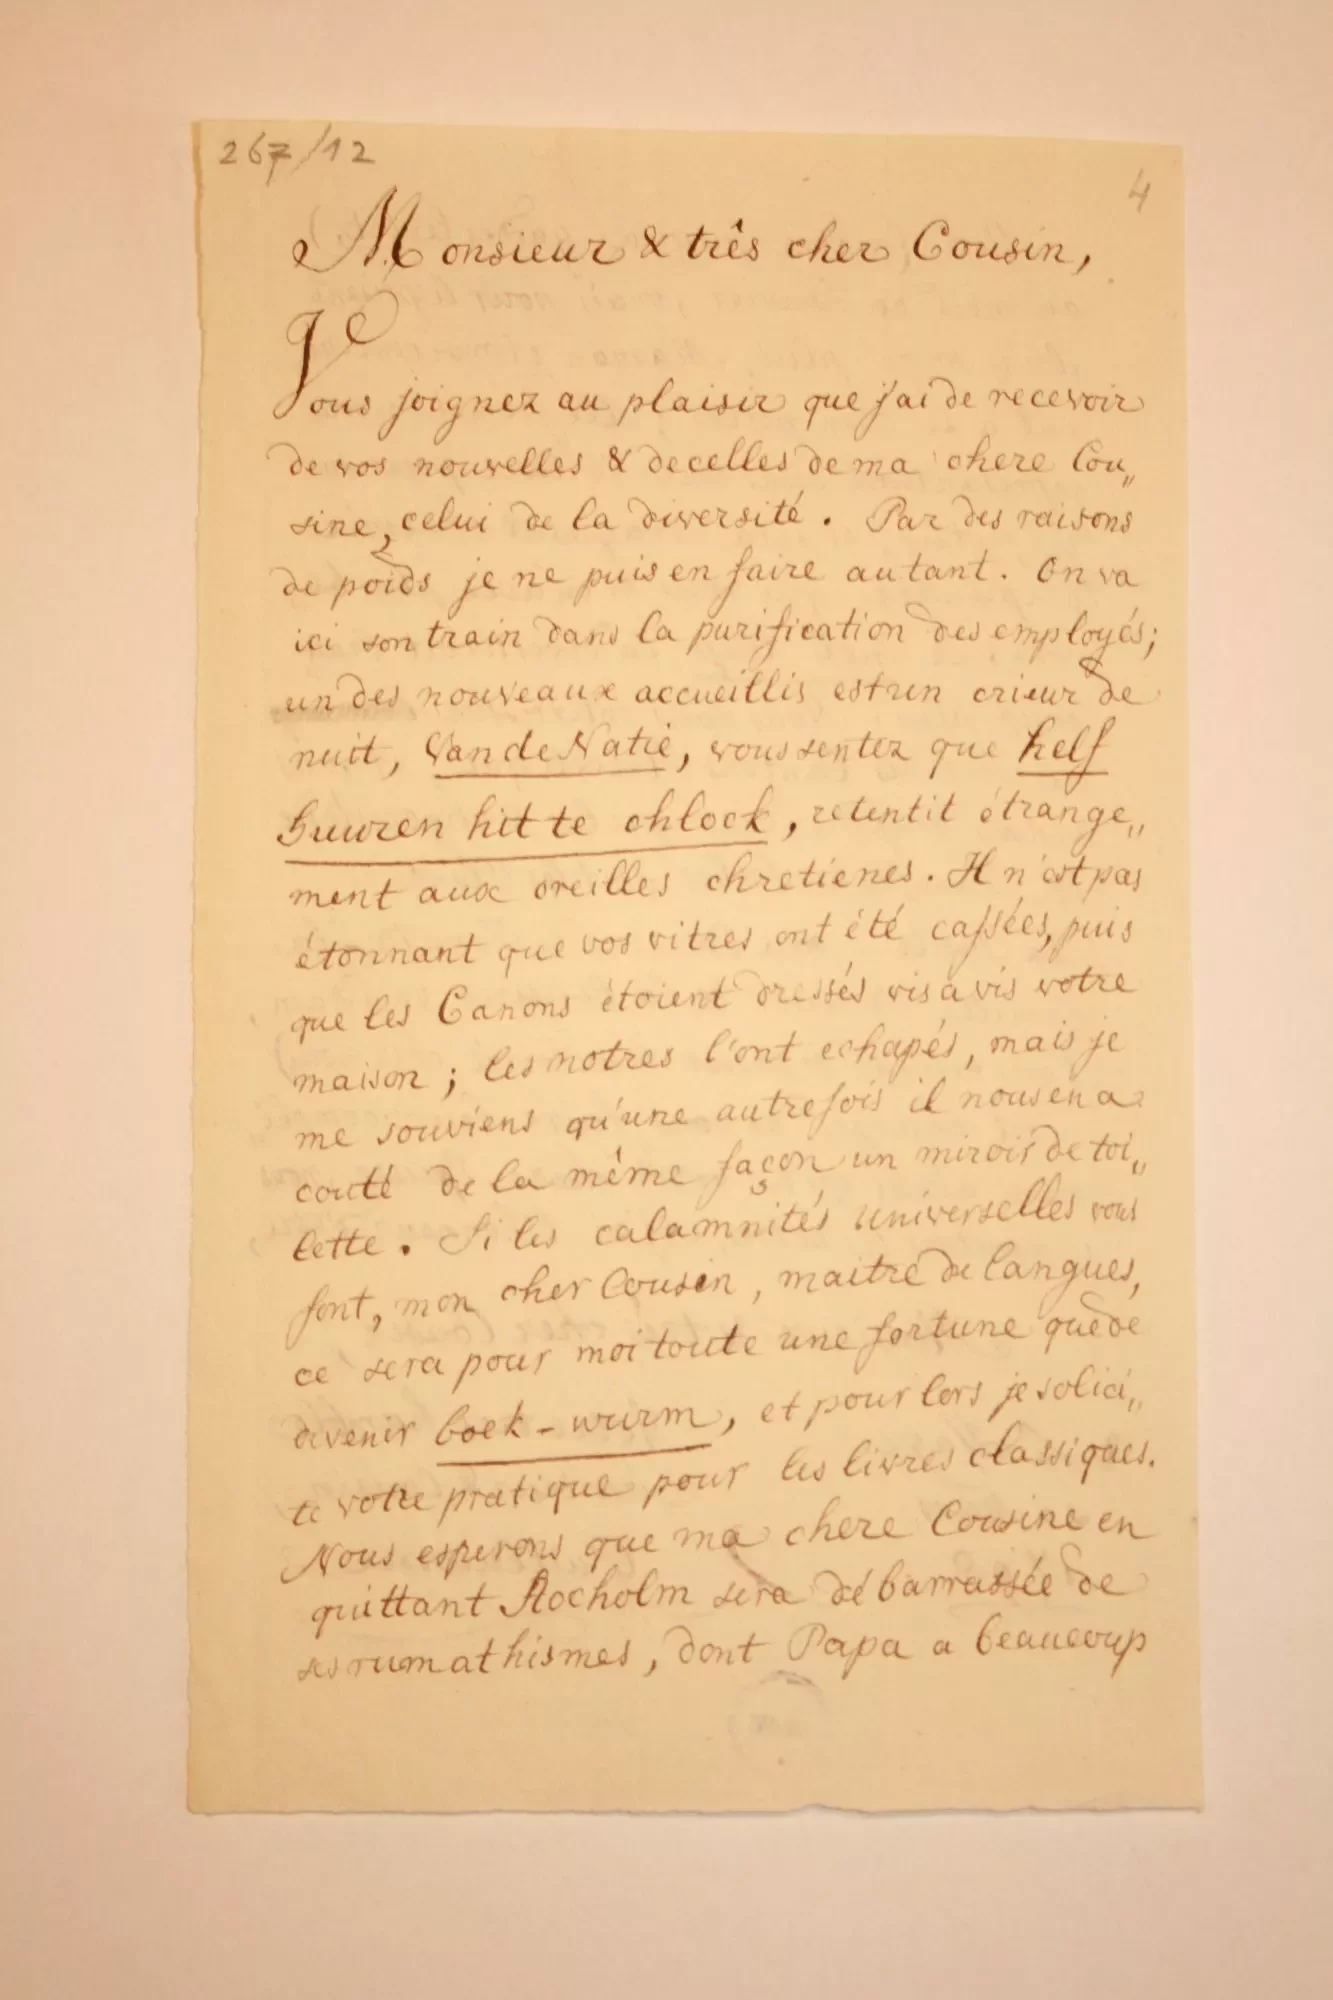 267/12
4
Monsieur & très cher Cousin,
Vous joignez au plaisir que j'ai de recevoir
de vos nouvelles & de celles de ma chere Cou„
sine, celui de la diversité. Par des raisons
de poids je ne puis en faire autant. On va
ici son train dans la purification des employés;
un des nouveaux accueillis est un crieur de
nuit, Van de Natie, vous sentez que helf
huwren hit te chlock, retentit étrange„
ment aux oreilles chretienes. Il n'est pas
étonnant que vos vitres ont été cassées, puis
que les Canons étoient dressés vis a vis votre
maison; les notres l'ont echapés, mais je
me souviens qu'une autrefois il nous en a
couté de la même façon un miroir de toi„
lette. Si les calamnités universelles vous
font, mon cher Cousin, maitre de langues,
ce sera pour moi toute une fortune que de
devenir boek-wurm, et pour lors je solici„
te votre pratique pour les livres classiques.
Nous esperons que ma chere Cousine en
quittant Stocholm sera débarrassée de
ses rumathismes, dont Papa a beaucoup